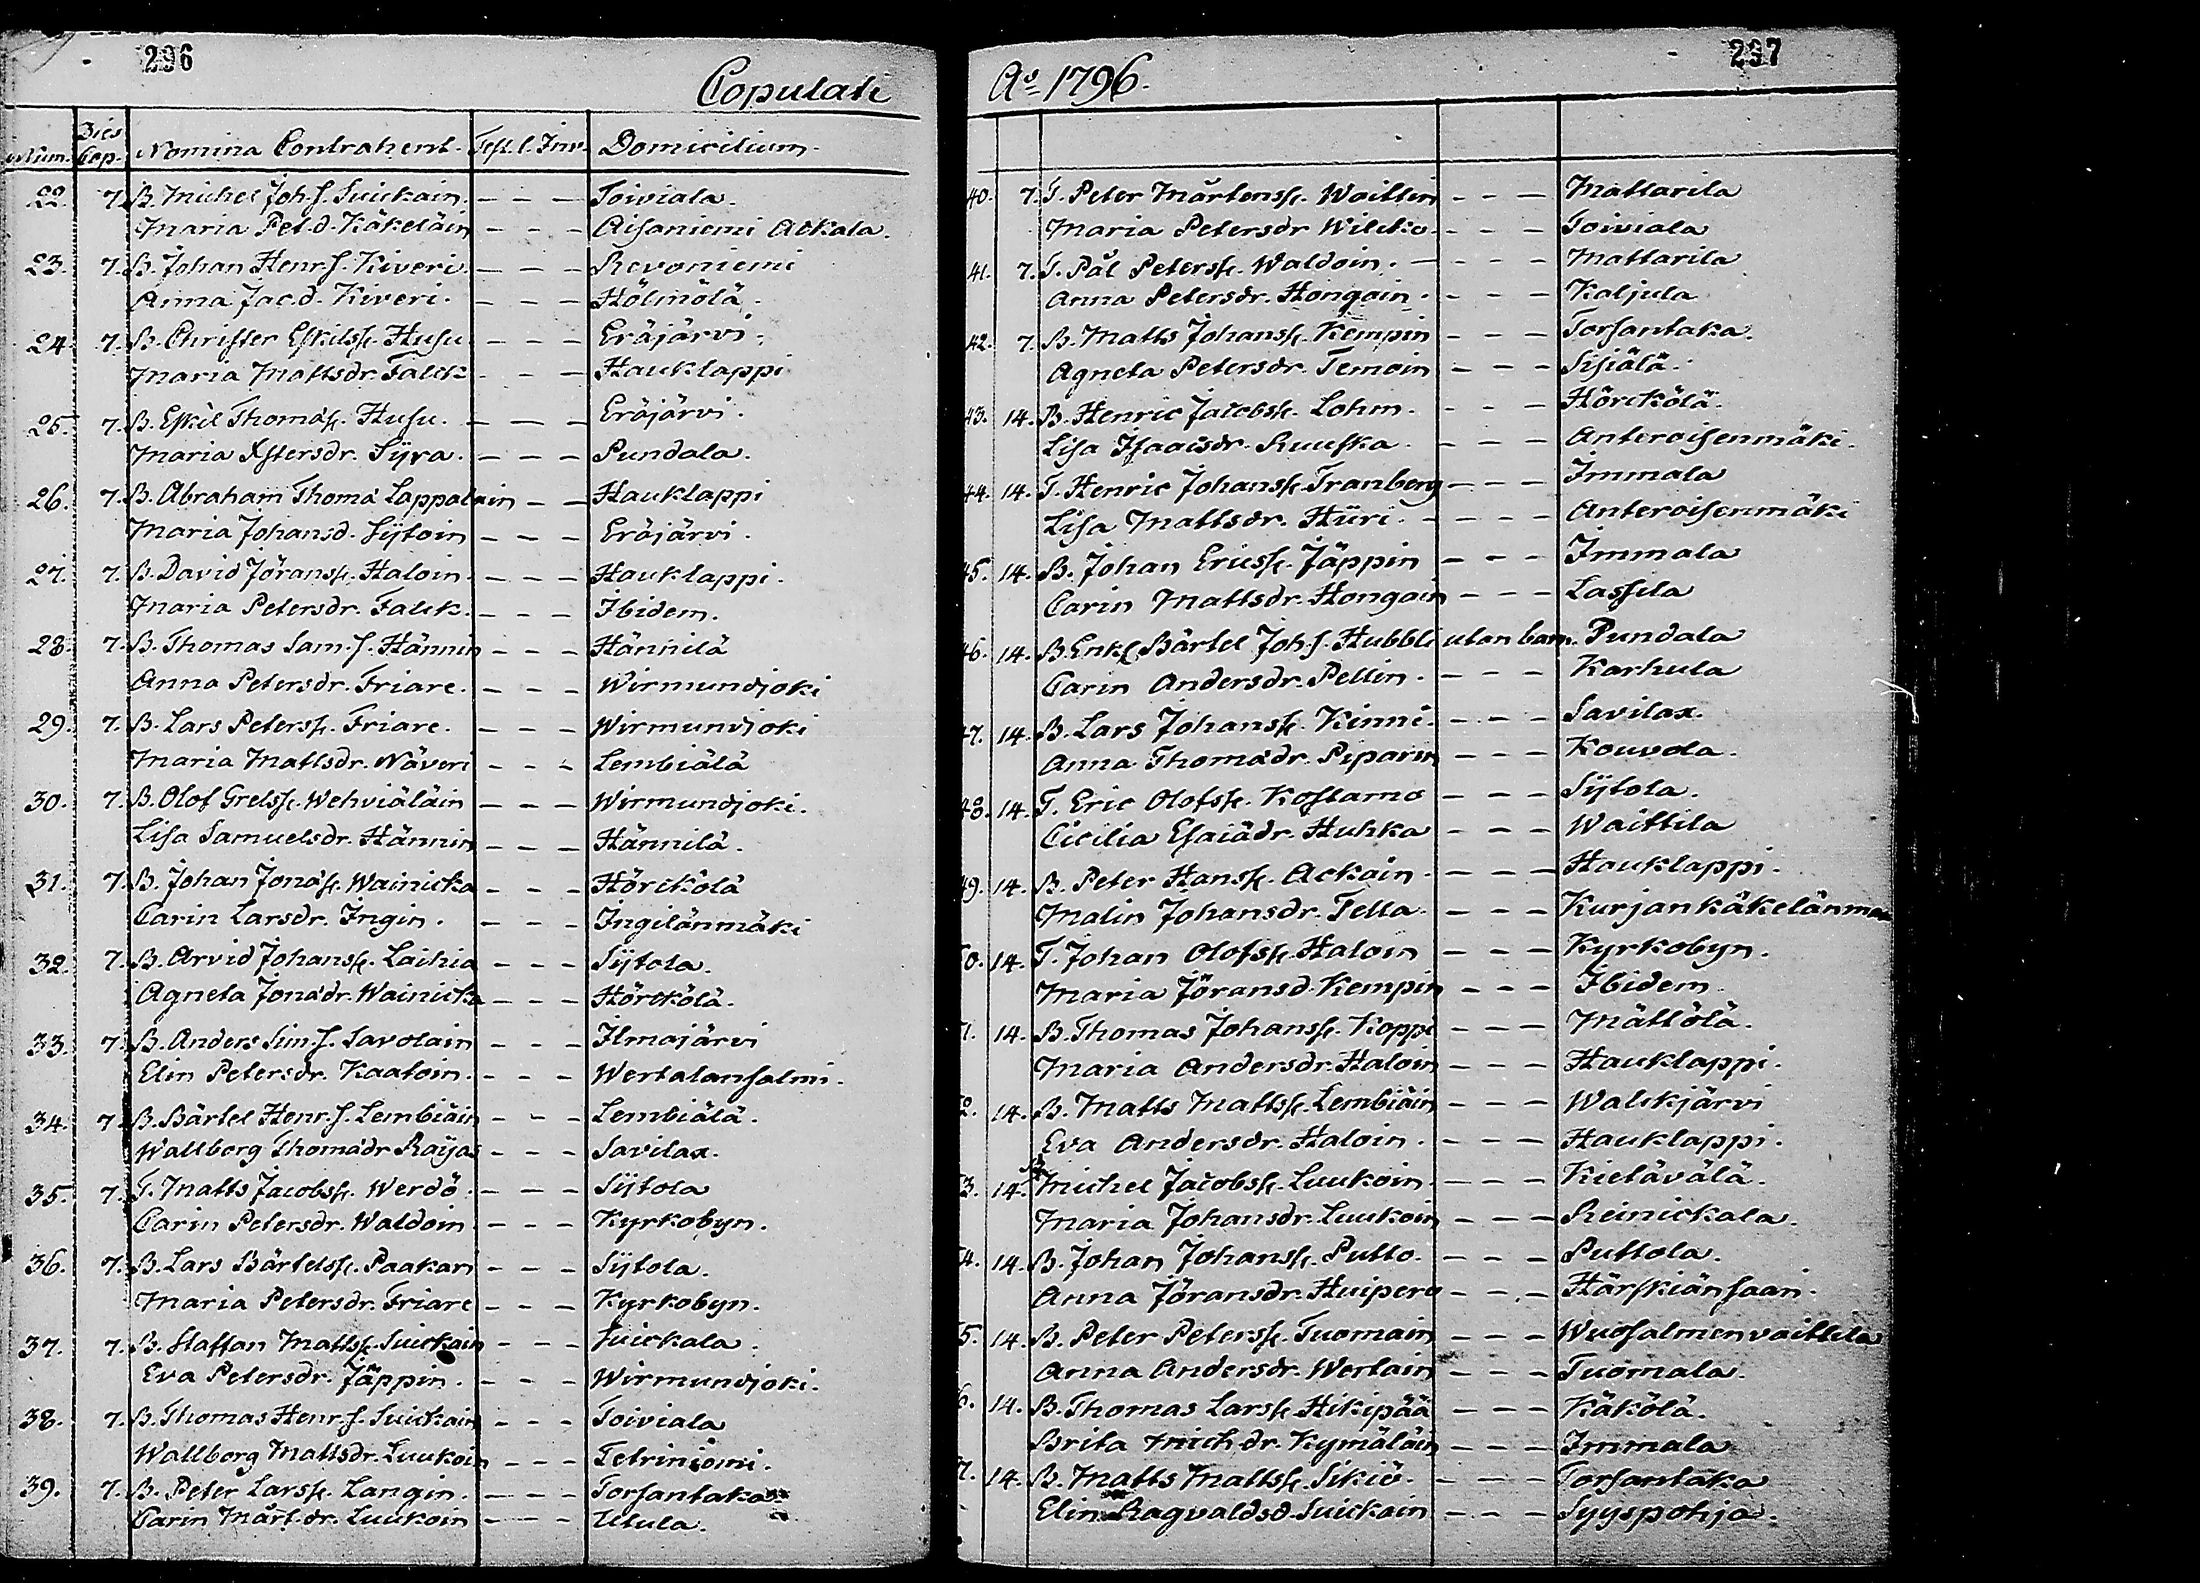 296
Copulati
Num. Dies Cop. Nomina Contrahent. Test. l. Inv. Domicilium.
22. 7. B. Michel Joh. s. Suickain. - - - Toiviala.
Maria Pet. d. Käkeläin - - - Aisaniemi Ackala.
23. 7. B. Johan Henr. s. Kiveri. - - - Revoniemi
Anna Jac. d. Kiveri. - - - Hölmölä.
24. 7. B. Christer Eskilss. Husu - - - Eräjärvi.
Maria Mattsdr. Falck - - - Hauklappi
25. 7. B. Eskil Thomas. Husu. - - - Eräjärvi.
Maria Xstersdr. Syra. - - - Pundala.
26. 7. B. Abraham Thoma Lappalain - - Hauklappi
Maria Johansd. Sytoin - - - Eräjärvi.
27. 7. B. David Jöranss. Haloin. - - - Hauklappi.
Maria Petersdr. Falck. - - - Ibidem.
28. 7. B. Thomas Sam. s. Hännin - - - Hännilä
Anna Petersdr. Friare. - - - Wirmundjoki
29. 7. B. Lars Peterss. Friare. - - - Wirmundjoki
Maria Mattsdr. Näveri - - - Lembiälä
30. 7. B. Olof Grelss. Wehviäläin - - - Wirmundjoki.
Lisa Samuelsdr. Hännin - - - Hännilä.
31. 7. B. Johan Jonas. Wainicka - - - Hörckölä
Carin Larsdr. Ingin. - - - Ingilänmäki
32. 7. B. Arvid Johanss. Laihia - - - Sytola.
Agneta Jonadr. Wainicka - - - Hörckölä.
33. 7. B. Anders Sim. s. Savolain - - - Ilmajärvi
Elin Petersdr. Kaatoin. - - - Wertalansalmi.
34. 7. B. Bärtel Henr. s. Lembiäin - - Lembiälä.
Wallborg Thomadr Raijas - - - Savilax.
35. 7. T. Matts Jacobss. Werdö. - - - Sytola
Carin Petersdr. Waldoin - - - Kyrkobyn.
36. 7. B. Lars Bärtelss. Paakari - - - Sytola.
Maria Petersdr. Friare - - - Kyrkobyn.
37. 7. B. Staffan Mattss. Suickain - - - Suickala.
Eva Petersdr. Jäppin. - - - Wirmundjoki.
38. 7. B. Thomas Henr. s. Suickain - - - Toiviala
Wallborg Mattsdr. Luukoin - - - Tetriniömi.
39. 7. B. Peter Larss. Langin. - - - Torsantaka
Carin Mårt. dr. Luukoin - - - Utula.
297
Ao 1796.
40. 7. T. Peter Mårtenss. Woitten - - - Mattarila
Maria Petersdr Wilcko. - - - Toiviala
41. 7. T. Pål Peterss. Waldoin. - - - - Mattarila
Anna Petersdr. Hongoin. - - - Kaljula
42. 7. B. Matts Johanss. Kempin - - - Torsantaka.
Agneta Petersdr. Temoin - - - Sisiälä.
43. 14. B. Henric Jacobss. Lohm. - - - Hörckölä.
Lisa Isaacsdr. Ruuska. - - - Anteroisenmäki.
44. 14. T. Henric Johanss. Tranberg - - - Immala
Lisa Mattsdr. Hüri. - - - - Anteroisenmäki
45. 14. B. Johan Ericss. Jäppin - - - Immala
Carin Mattsdr. Hongoin - - - Lassila
46. 14. B. Enkl. Bärtel Joh. s. Hubbli utan barn. Pundala
Carin Andersdr. Pellin. - - - Karhula
47. 14. B. Lars Johanss. Kinni. - - - Savilax.
Anna Thomadr. Piparin - - - Kouvola.
48. 14. T. Eric Olofss. Kostamo - - - Sytola.
Cicilia Esaiädr. Huhka - - - Waittila
49. 14. B. Peter Hanss. Ackain. - - - Hauklappi.
Malin Johansdr. Tella. - - - Kurjankäkelänma
50. 14. T. Johan Olofss. Haloin - - - Kyrkobyn.
Maria Jöransd. Kempin - - - Ibidem.
1. 14. B. Thomas Johanss. Koppi - - - Mättölä.
Maria Andersdr. Haloin - - - Hauklappi.
2. 14. B. Matts Mattss. Lembiäin - - - Walckjärvi
Eva Andersdr. Haloin. - - - Hauklappi.
3. 14. B. Michel Jacobss. Luukoin. - - - Kietävälä.
Maria Johansdr. Luukoin - - - Reinickala.
4. 14. B. Johan Johanss. Putto. - - - Puttola.
Anna Jöransdr. Huipero - - - Härskiänsaari.
5. 14. B. Peter Peterss. Tuomain - - - Wuosalmenvaittila
Anna Andersdr. Wertain - - - Tuomala.
6. 14. B. Thomas Larss. Hikipää - - - Käkölä.
Brita Mich. dr. Kymäläin - - - Immala
7. 14. B. Matts Mattss. Sikiö. - - - Torsantaka
Elin Ragvaldsd. Suickain - - - Syyspohja.